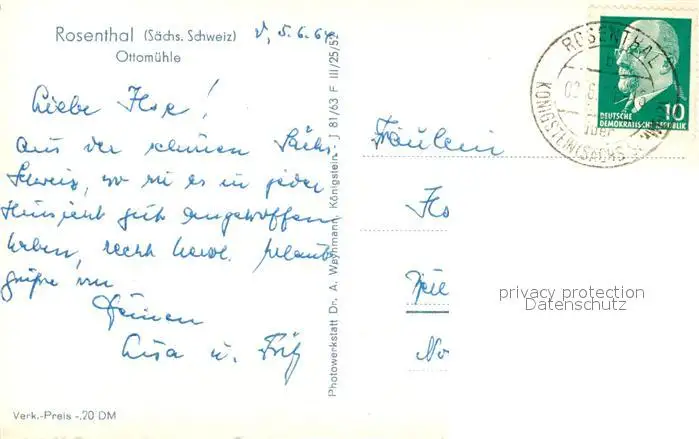 Rosenthal (Sächs. Schweiz)
Ottomühle
d, 5.6.64
Liebe Ilse!
Aus der schönen Sächs.
Schweiz, wo wir es in jeder
Hinsicht gut angetroffen
haben, recht herzl. Urlaubs-
grüße von
Deinen
Lisa u. Fritz
Verk.-Preis -.20 DM
Photowerkstatt Dr. A. Weyhmann, Königstein J 81/63 F III/25/52
ROSENTHAL
b
über
KÖNIGSTEIN (SÄCHS SCHW)
10
DEUTSCHE
DEMOKRATISCHE REPUBLIK
Fräulein
privacy protection
Datenschutz